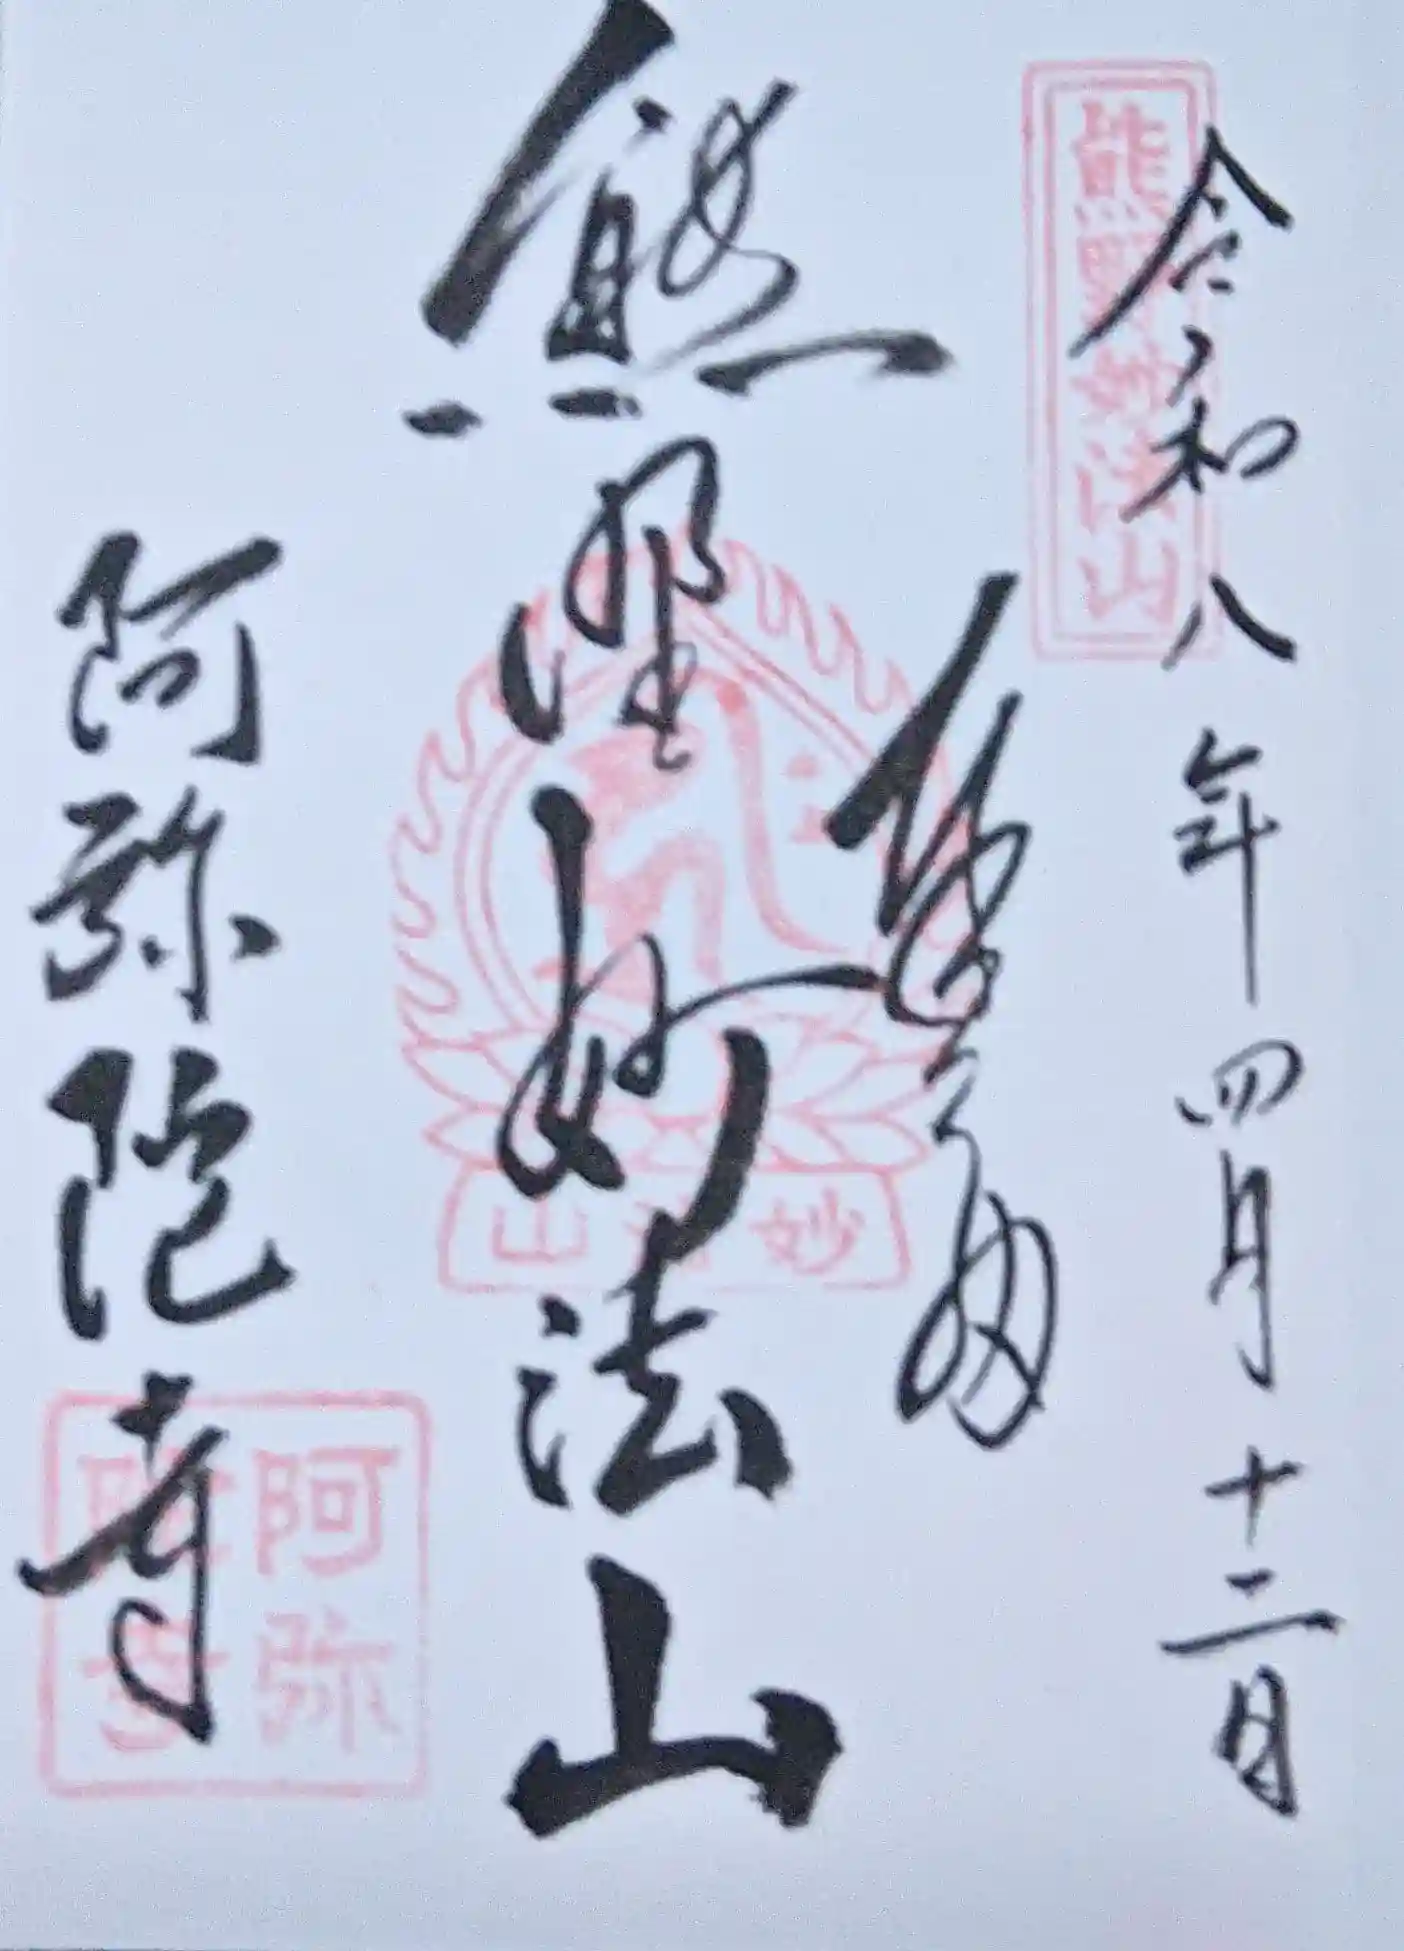 令和八年四月十二日
熊野妙法山
登拝
熊野妙法山
妙法山
阿弥陀寺
阿弥陀寺